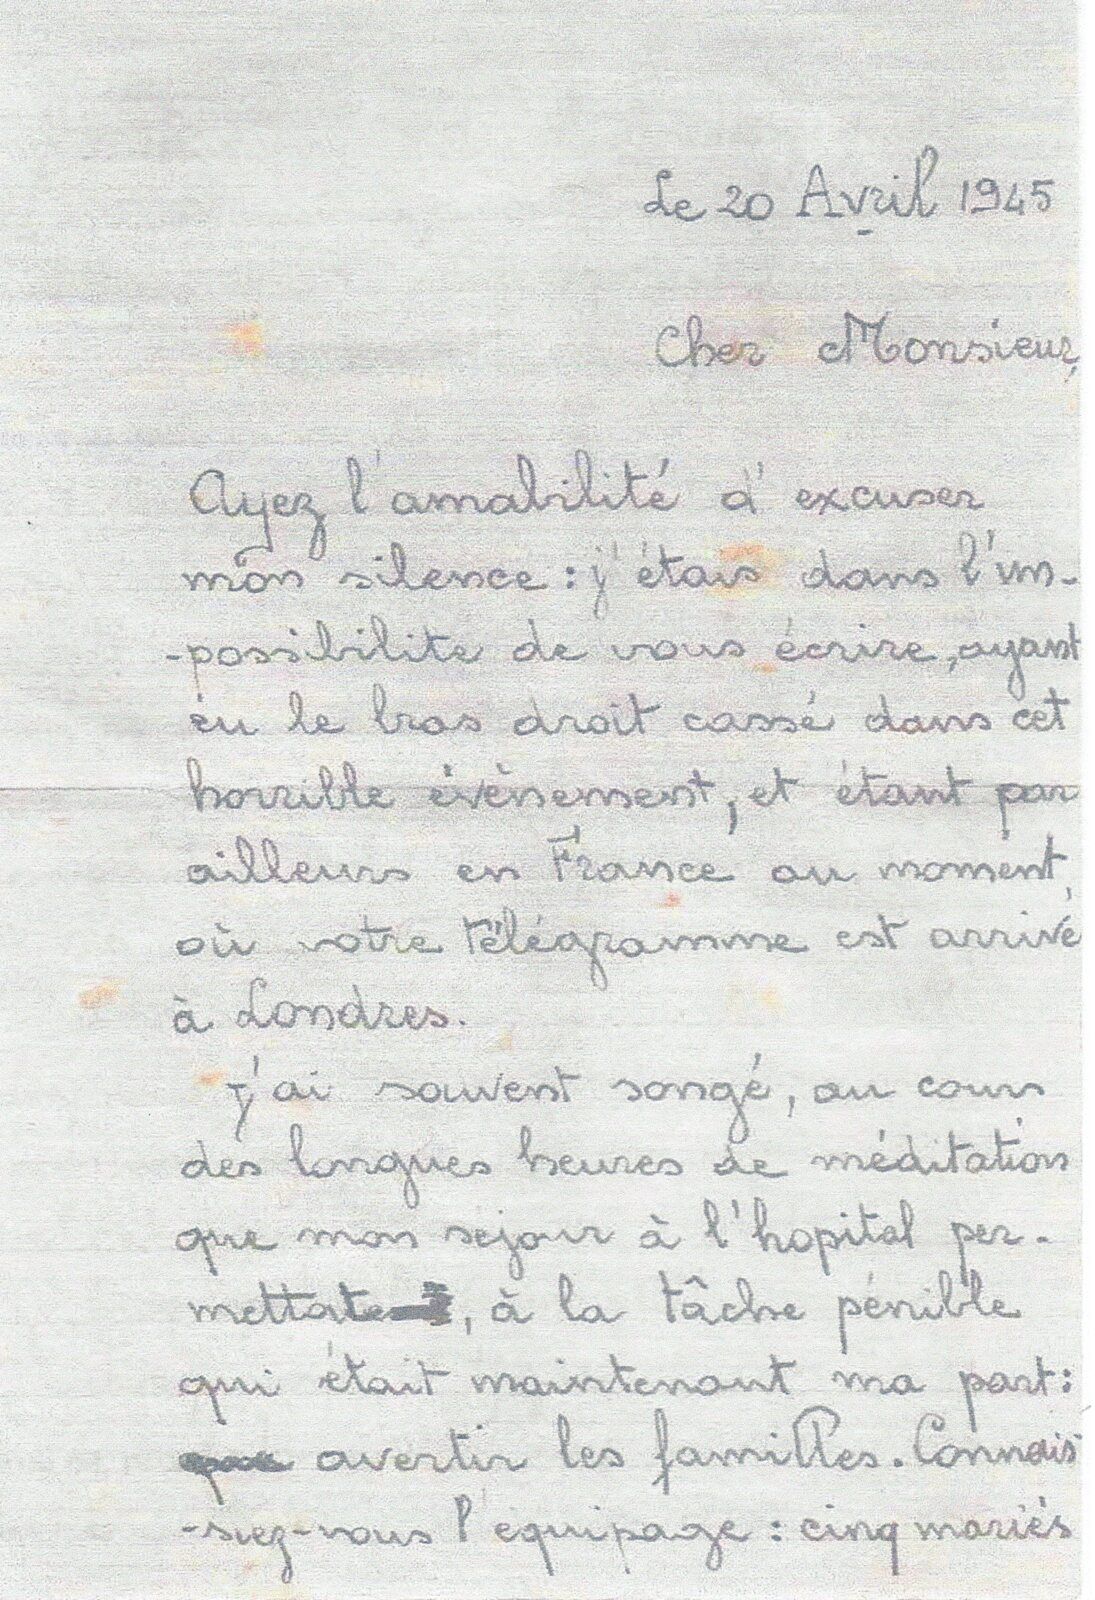 Le 20 Avril 1945
Cher Monsieur,
Ayez l'amabilité d'excuser
mon silence : j'étais dans l'im-
-possibilité de vous écrire, ayant
eu le bras droit cassé dans cet
horrible évènement, et étant par
ailleurs en France au moment,
où votre télégramme est arrivé
à Londres.
J'ai souvent songé, au cours
des longues heures de méditation
que mon séjour à l'hopital per-
mettate, à la tâche pénible
qui était maintenant ma part :
avertir les familles. Connais
-siez-vous l'équipage : cinq mariés